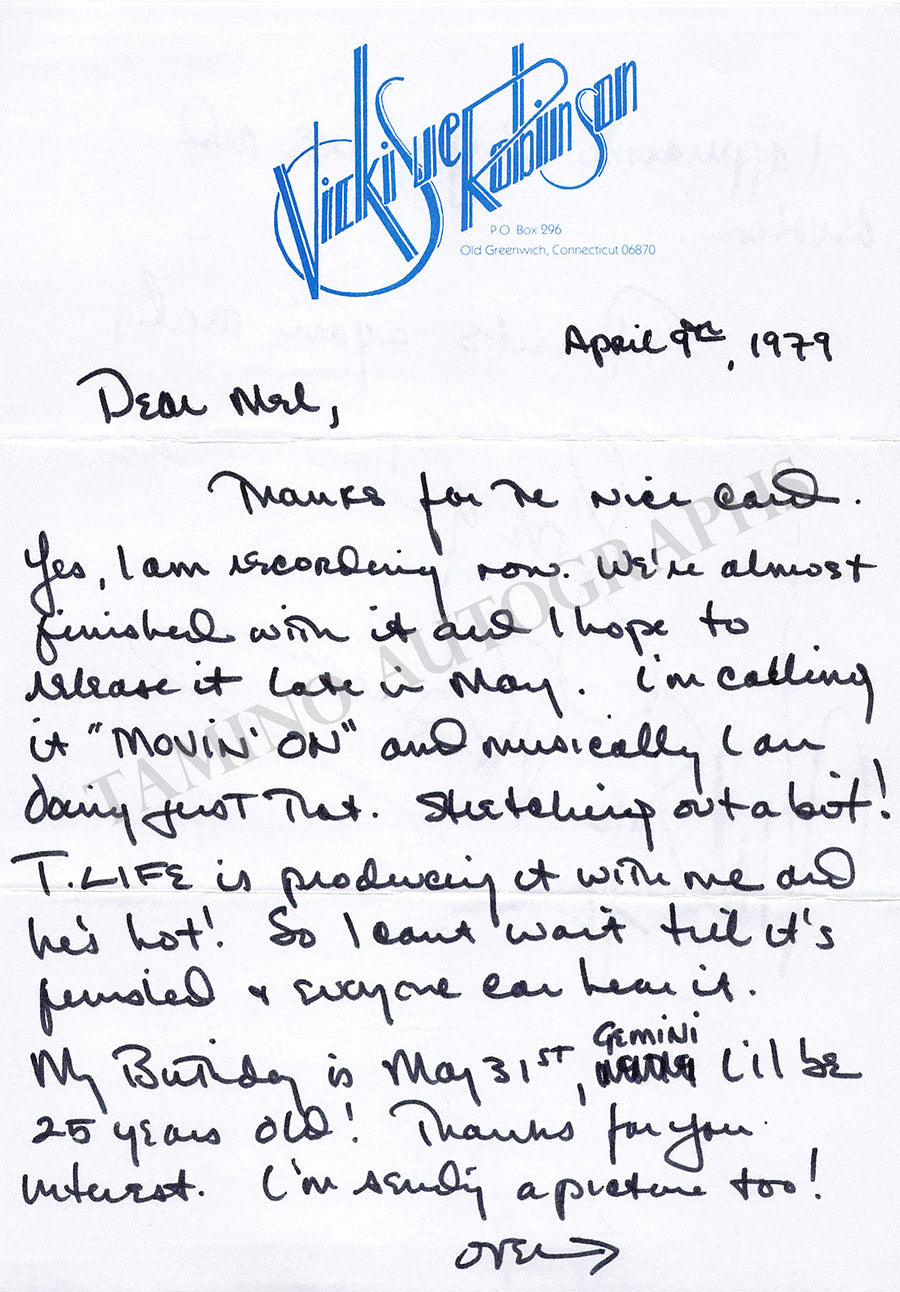 Vicki Sue Robinson
P.O. Box 296
Old Greenwich, Connecticut 06870
April 9th, 1979
Dear Mel,
Thanks for the nice card.
Yes, I am recording now. We're almost
finished with it and I hope to
release it late in May. I'm calling
it "MOVIN' ON" and musically I am
doing just that. Stretching out a bit!
T. LIFE is producing it with me and
he's hot! So I can't wait till it's
finished & everyone can hear it.
My Birthday is May 31st, GEMINI I'll be
25 years old! Thanks for your
interest. I'm sending a picture too!
OVER →
TAMINO AUTOGRAPHS